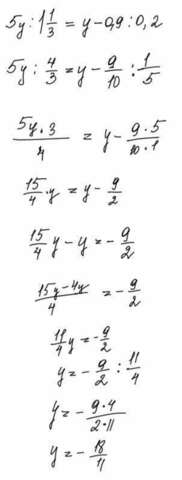 5y : 1 1/3 = y - 0,9 : 0,2
5y : 4/3 = y - 9/10 : 1/5
5y · 3/4 = y - 9 · 5/10 · 1
15/4 · y = y - 9/2
15/4 y - y = - 9/2
15y - 4y/4 = - 9/2
11/4 y = - 9/2
y = - 9/2 : 11/4
y = - 9 · 4/2 · 11
y = - 18/11